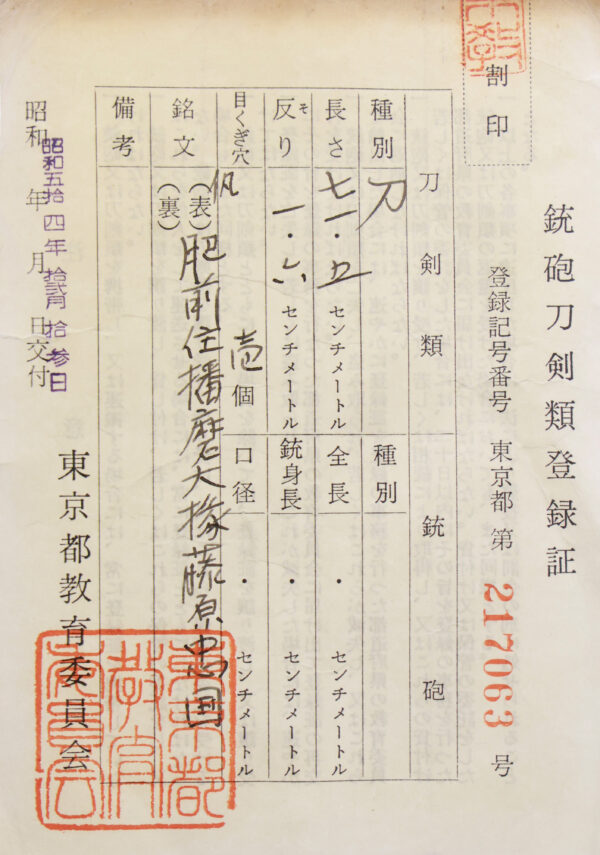 割印
銃砲刀剣類登録証
登録記号番号 東京都 第 217063 号
刀剣類
銃砲
種別 刀
種別
長さ 七一・五 センチメートル
全長 ・ センチメートル
反り そ 一・六 センチメートル
銃身長 ・ センチメートル
目くぎ穴 壱個
口径 ・ センチメートル
銘文 (表) 肥前住播磨大掾藤原忠国
(裏)
備考
昭和 年 月 日交付
昭和五拾四年拾弐月拾参日
東京都教育委員会
東京都教育委員会